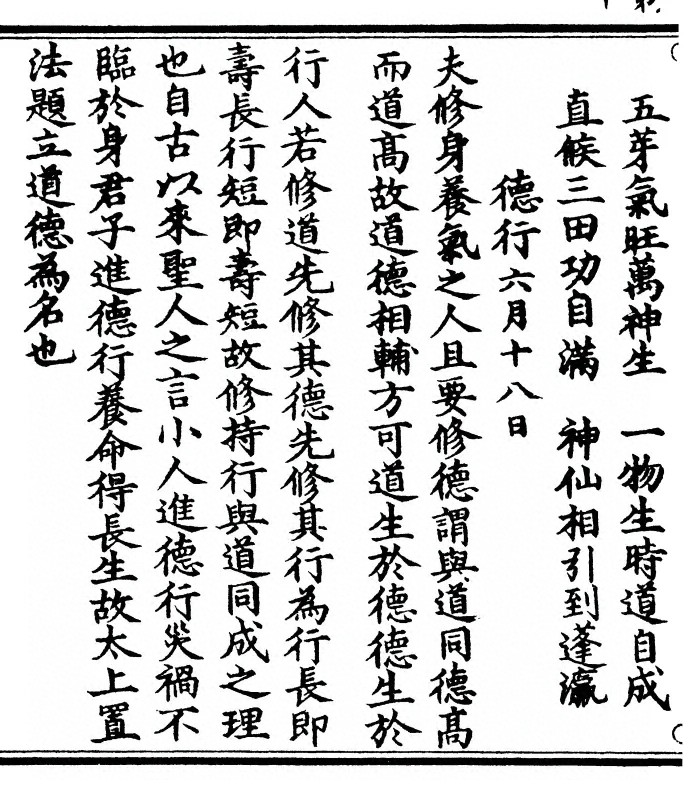 五芽氣旺萬神生　一物生時道自成
直候三田功自滿　神仙相引到蓬瀛
德行六月十八日
夫修身養氣之人且要修德謂與道同德高
而道高故道德相輔方可道生於德德生於
行人若修道先修其德先修其行為行長即
壽長行短即壽短故修持行與道同成之理
也自古以來聖人之言小人進德行災禍不
臨於身君子進德行養命得長生故太上置
法題立道德為名也